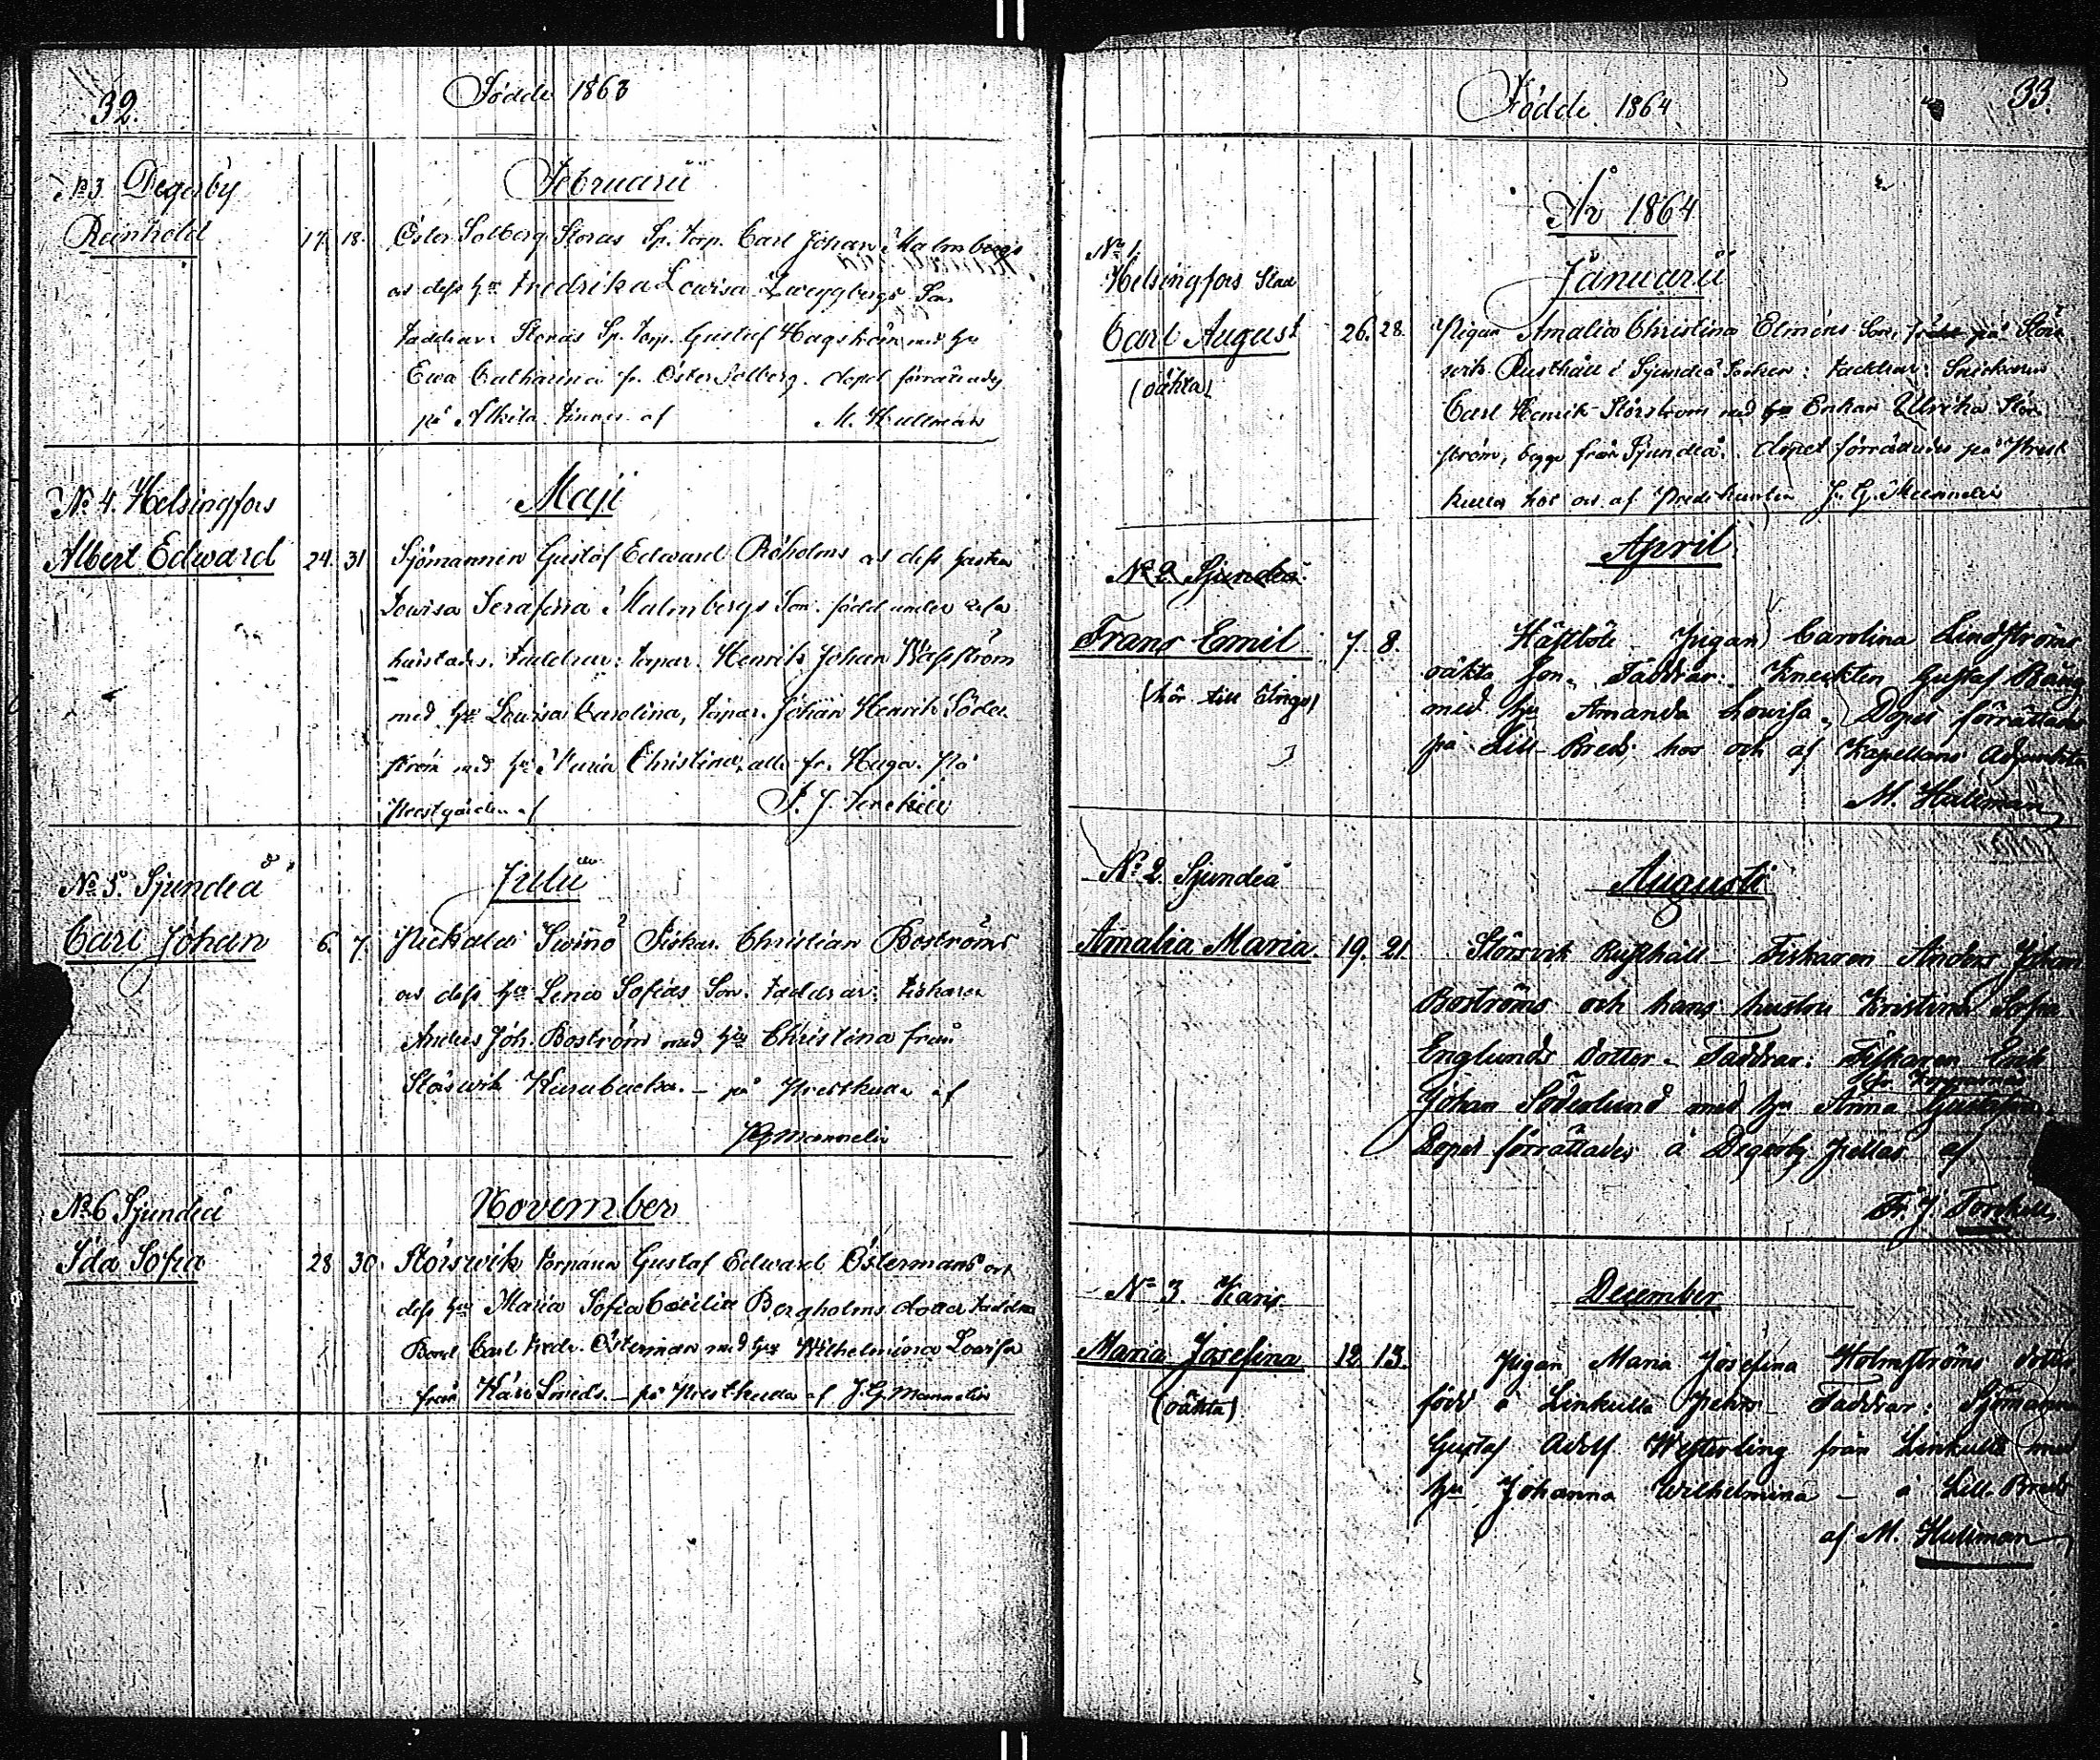 32.
Födde 1863
No 3 Degerby
Februarii
Reinhold
17. 18. Öster Solberg Storas Sp. torp. Carl Johan Malmbergs
o. dess hu Fredrika Lowisa Son
Faddrar: Storas Sp. torp. Gustaf Hagström med hu
Ewa Catharina fr. Öster Solberg. dopet förrättades
på af M. Hullman
No 4. Helsingfors
Maji
Albert Edward 24. 31 Sjömannen Gustaf Edward Röholms o. dess hustru
Lowisa Serafina Malmbergs Son. född under
Faddrar: torpar. Henrik Johan Wassström
med hu Lowisa Carolina, torpar. Johan Henrik Söder
ström med hu Maria Christina, alla fr. På
Prestgården af
No 5. Sjundeå
Julii
Carl Johan 6. 7. Pickala Swinö Fiskar. Christian Boströms
o. dess hu Lena Sofias Son. Faddrar: Fiskaren
Anders Joh. Boström med hu Christina från
Störswik Kurubacka. – på Prestkulla af
JGMannelin
No 6 Sjundeå
November
Ida Sofia 28 30. Störswik torparen Gustaf Edward Östermans och
dess hu Maria Sofia Cecilia Bergholms dotter Faddrar
Bond Carl Fredr. Österman med hu Wilhelmina Lovisa
från Smeds. – på Prestkulla af J. G. Mannelin
Födde 1864
33.
År 1864
No 1.
Helsingfors Stad
Januarii
Carl August 26. 28. Pigan Amalia Christina Elméns Son, född på Störs
wik Rusthåll i Sjundeå Socken: Faddrar: Snickaren
(oäkta)
Carl Henrik Störström med Enkan Ulrika Stör
ström, begge från Sjundeå. dopet förrättades på Prest
kulla hos o. af Predikanten J. G. Mannelin
April
No 2. Sjundeå
Frans Emil 7. 8. Hästböle Pigan Carolina Lindströms
oäkta Son. Faddrar: Knekten Gustaf Räng
(hör till Ingo)
med hu Amanda Lowisa. Dopet förrättades
på Lill-Breds hos och af Kapellans Adjunkten
M. Hullman
No 2. Sjundeå
Augusti
Amalia Maria. 19. 21. Störsvik Rusthåll – Fiskaren Anders Johan
Boströms och hans hustru Kristina Sofia
Englunds dotter – Faddrar: Fiskaren
Johan Söderlund med hu Anna Gustafva.
Dopet förrättades å Degerby af
Fr. J. Torckell
No 3. Karis
December
Maria Josefina 12. 13. Pigan Maria Josefina Holmströms dotter
(oäkta)
född å Linkulla – Faddrar: Sjömannen
Gustaf Adolf Westerling från Linkulla med
hu Johanna Wilhelmina – å Lill-Breds
af M. Hullman